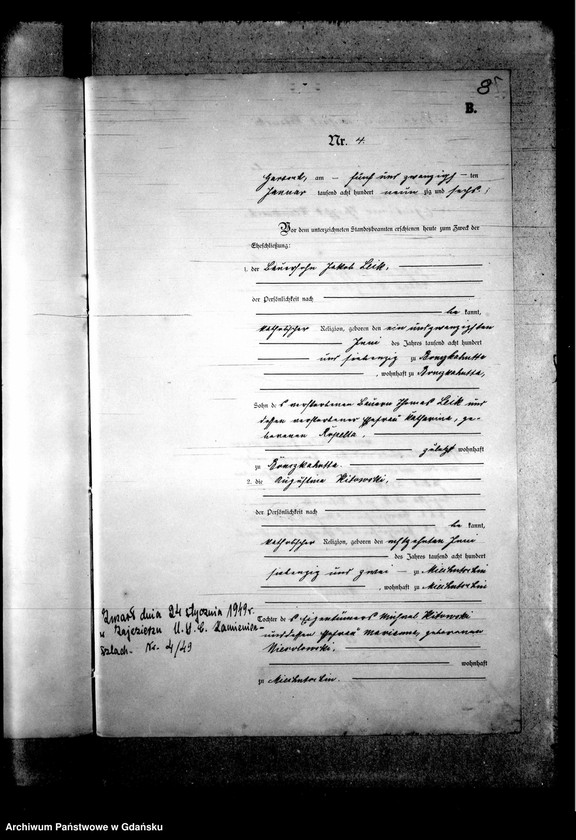 8
B.
Nr. 4.
am — fünf und zwanzigsten
Januar tausend acht hundert neun zig und sechs;
Vor dem unterzeichneten Standesbeamten erschienen heute zum Zweck der
Eheschließung:
1. der Bauersohn Jakob Leik,
der Persönlichkeit nach
be kannt,
katholischer Religion, geboren den ein und zwanzigsten
Juni des Jahres tausend acht hundert
und siebenzig zu
, wohnhaft zu
Sohn des verstorbenen Bauern Thomas Leik und
dessen verstorbener Ehefrau Katharina, ge-
borenen
zuletzt wohnhaft
zu
2. die Augustina
der Persönlichkeit nach
be kannt,
katholischer Religion, geboren den achtzehnten Juni
des Jahres tausend acht hundert
siebenzig und zwei — zu
, wohnhaft zu
Tochter des Eigentümers Michael
und dessen Ehefrau Marianna, geborenen
wohnhaft
zu
Zmarł dnia 24 stycznia 1949 r.
w U.S.C. Kamienica-
Szlach. Nr. 4/49
Archiwum Państwowe w Gdańsku